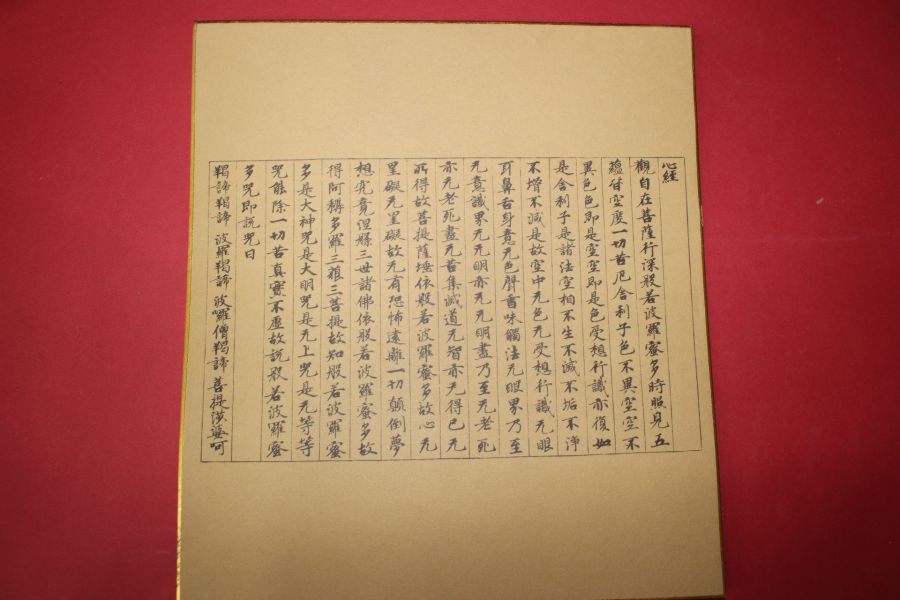 心經
觀自在菩薩行深般若波羅蜜多時照見五
蘊皆空度一切苦厄舍利子色不異空空不
異色色即是空空即是色受想行識亦復如
是舍利子是諸法空相不生不滅不垢不淨
不增不減是故空中无色无受想行識无眼
耳鼻舌身意无色聲香味觸法无眼界乃至
无意識界无无明亦无无明盡乃至无老死
亦无老死盡无苦集滅道无智亦无得已无
所得故菩提薩埵依般若波羅蜜多故心无
罣礙无罣礙故无有恐怖遠離一切顛倒夢
想究竟涅槃三世諸佛依般若波羅蜜多故
得阿耨多羅三藐三菩提故知般若波羅蜜
多是大神咒是大明咒是无上咒是无等等
咒能除一切苦真實不虛故說般若波羅蜜
多咒即說咒曰
羯諦羯諦 波羅羯諦 波羅僧羯諦 菩提莎婆呵